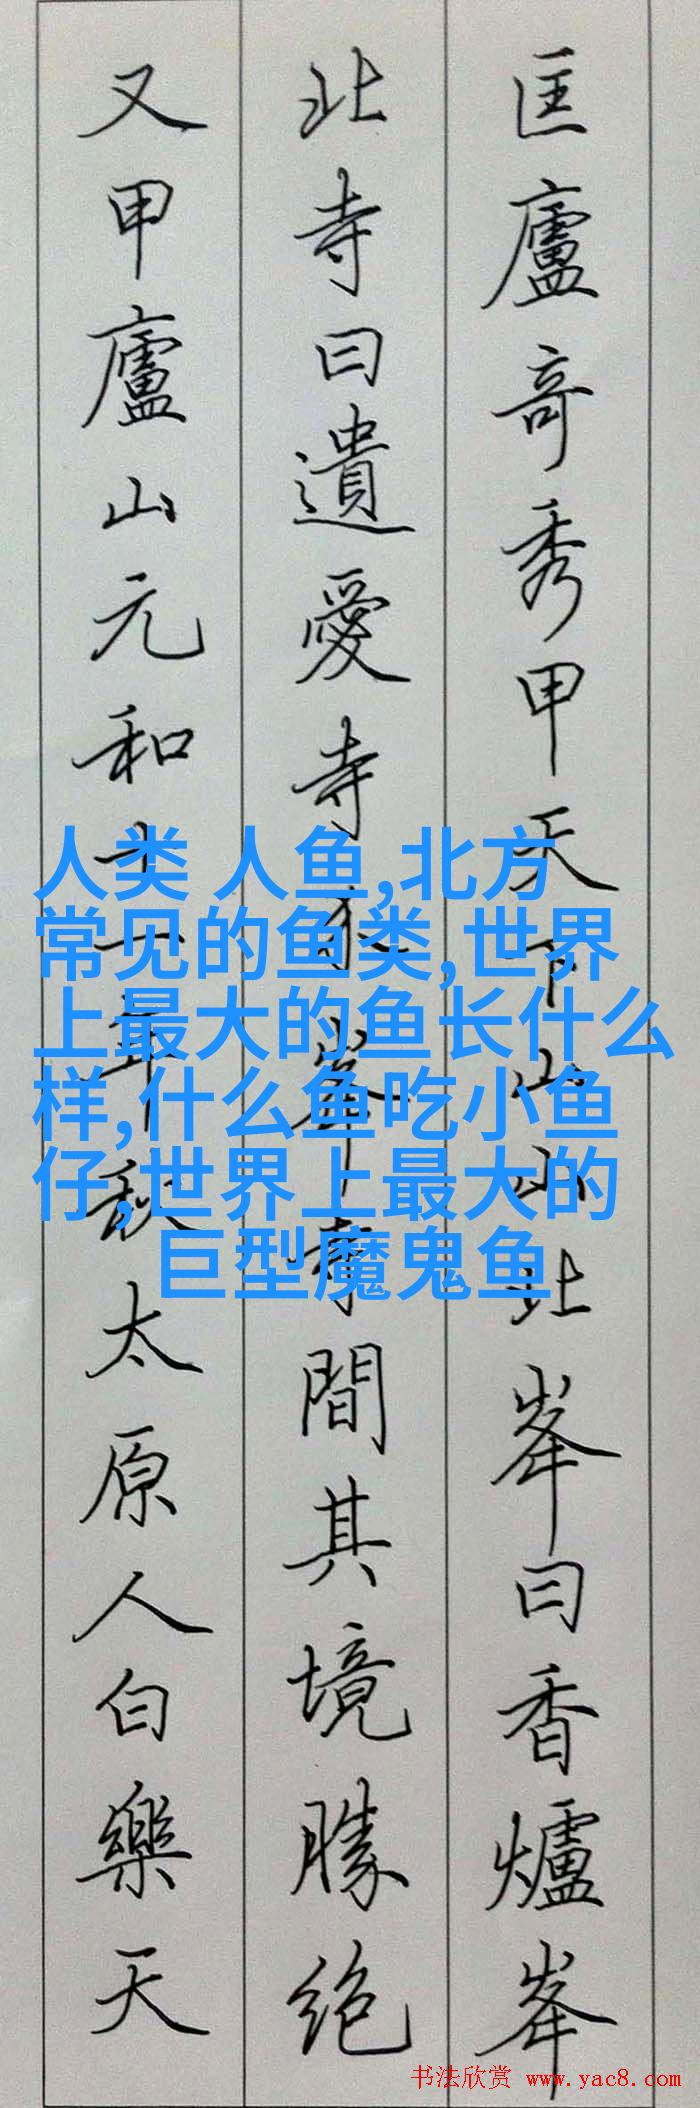 匡廬竒秀甲天下山山北峯曰香爐峯
北寺曰遺愛寺介峯寺間其境勝絶
又甲廬山元和十一年秋太原人白樂天
人类 人鱼,北方
常见的鱼类,世界
上最大的鱼长什么
样,什么鱼吃小鱼
仔,世界上最大的
巨型魔鬼鱼
书法欣赏 www.yac8.com